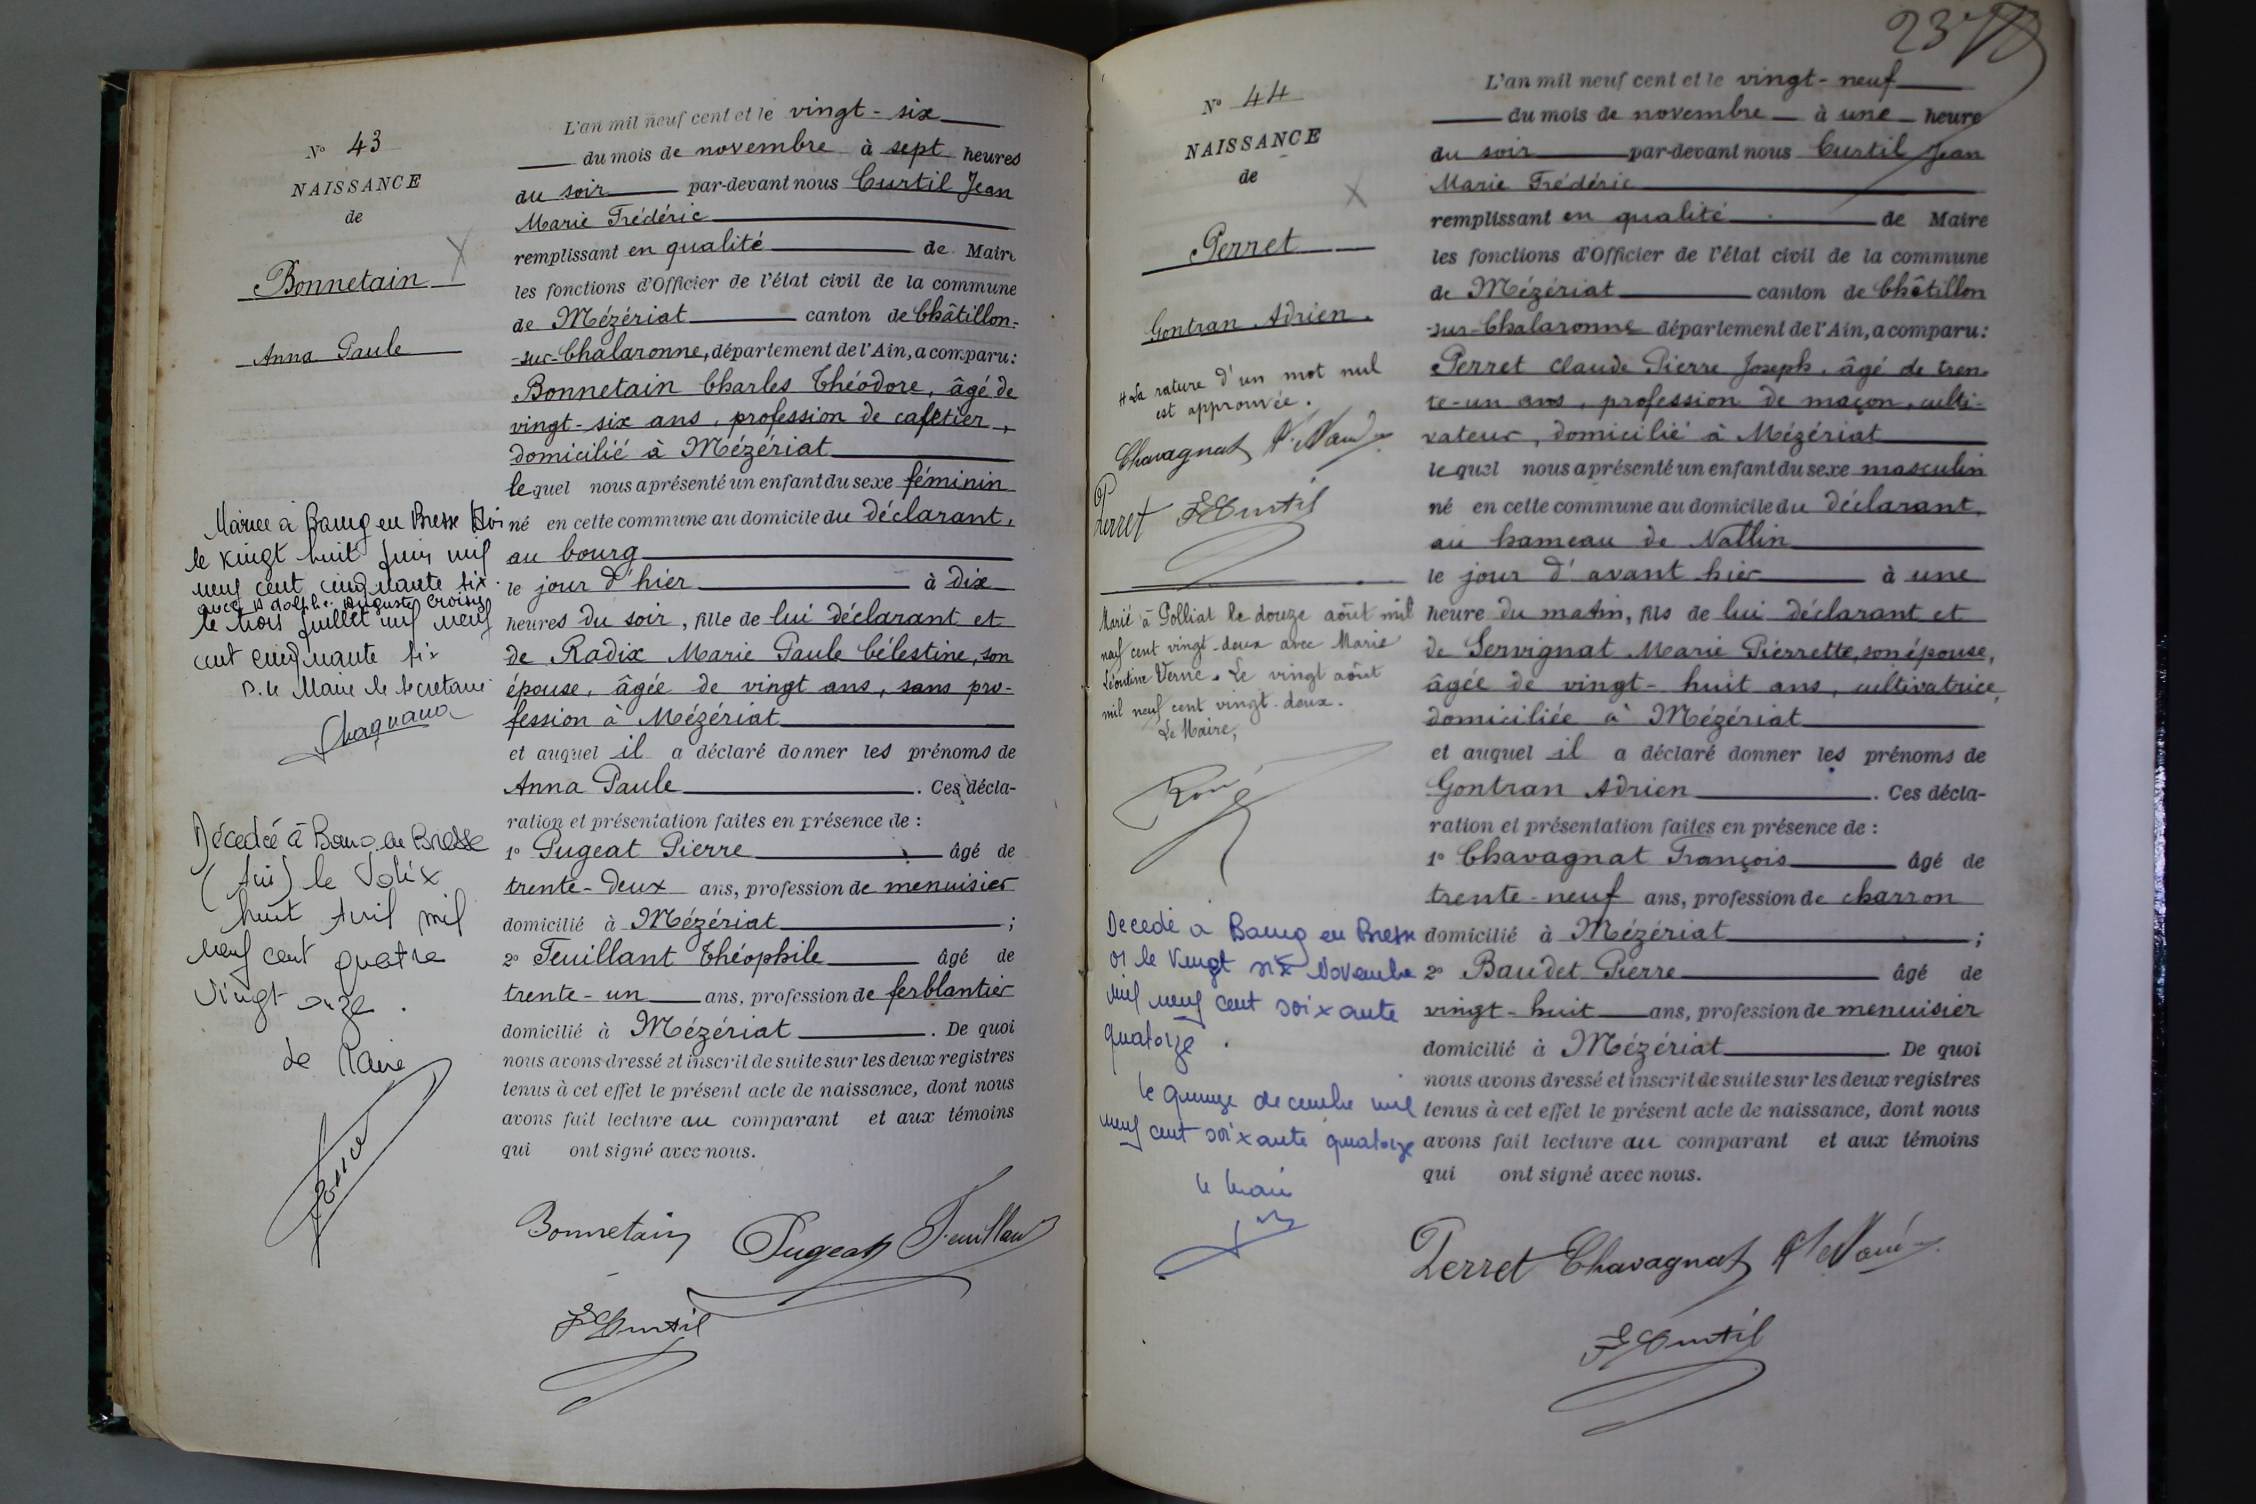 N° 43
NAISSANCE
de
Bonnetain
Anna Paule
Mariée à Bourg en Bresse
le vingt huit juin mil
neuf cent cinquante six
avec Adolphe Auguste Croisy
le trois juillet mil neuf
cent cinquante six
P. le Maire le secretaire
Décedée à Bourg en Bresse
(Ain) le dix
huit Avril mil
neuf cent quatre
vingt onze.
Le Maire
L'an mil neuf cent et le vingt-six
du mois de novembre à sept heures
du soir par-devant nous Curtil Jean
Marie Frédéric
remplissant en qualité de Maire
les fonctions d'Officier de l'état civil de la commune
de Mézériat canton de Châtillon-
-sur-Chalaronne, département de l'Ain, a comparu:
Bonnetain Charles Théodore, âgé de
vingt-six ans, profession de cafetier,
domicilié à Mézériat
lequel nous a présenté un enfant du sexe féminin
né en cette commune au domicile du déclarant,
au bourg
le jour d'hier à dix
heures du soir, fille de lui déclarant et
de Radix Marie Paule Célestine, son
épouse, âgée de vingt ans, sans pro-
fession à Mézériat
et auquel il a déclaré donner les prénoms de
Anna Paule. Ces décla-
ration et présentation faites en présence de :
1° Pugeat Pierre âgé de
trente-deux ans, profession de menuisier
domicilié à Mézériat ;
2° Feuillant Théophile âgé de
trente-un ans, profession de ferblantier
domicilié à Mézériat. De quoi
nous avons dressé et inscrit de suite sur les deux registres
tenus à cet effet le présent acte de naissance, dont nous
avons fait lecture au comparant et aux témoins
qui ont signé avec nous.
Bonnetain Pugeat Feuillant
F Curtil
23
N° 44
NAISSANCE
de
Perret
Gontran Adrien.
# La rature d'un mot nul
est approuvée.
Chavagnat
Perret F Curtil
Marié à Polliat le douze août mil
neuf cent vingt-deux avec Marie
Léontine Verne. Le vingt août
mil neuf cent vingt-deux.
Le Maire,
Decedé à Bourg en Bresse
01 le vingt six Novembre
mil neuf cent soixante
quatorze.
le quinze decembre mil
neuf cent soixante quatorze
le maire
L'an mil neuf cent et le vingt-neuf
du mois de novembre à une heure
du soir par-devant nous Curtil Jean
Marie Frédéric
remplissant en qualité de Maire
les fonctions d'Officier de l'état civil de la commune
de Mézériat canton de Châtillon
-sur-Chalaronne département de l'Ain, a comparu:
Perret Claude Pierre Joseph, âgé de tren-
te-un ans, profession de maçon, culti-
vateur, domicilié à Mézériat
lequel nous a présenté un enfant du sexe masculin
né en cette commune au domicile du déclarant,
au hameau de Nallin
le jour d'avant hier à une
heure du matin, fils de lui déclarant et
de Servignat Marie Pierrette, son épouse,
âgée de vingt-huit ans, cultivatrice,
domiciliée à Mézériat
et auquel il a déclaré donner les prénoms de
Gontran Adrien. Ces décla-
ration et présentation faites en présence de :
1° Chavagnat François âgé de
trente-neuf ans, profession de charron
domicilié à Mézériat ;
2° Baudet Pierre âgé de
vingt-huit ans, profession de menuisier
domicilié à Mézériat. De quoi
nous avons dressé et inscrit de suite sur les deux registres
tenus à cet effet le présent acte de naissance, dont nous
avons fait lecture au comparant et aux témoins
qui ont signé avec nous.
Perret Chavagnat
F Curtil